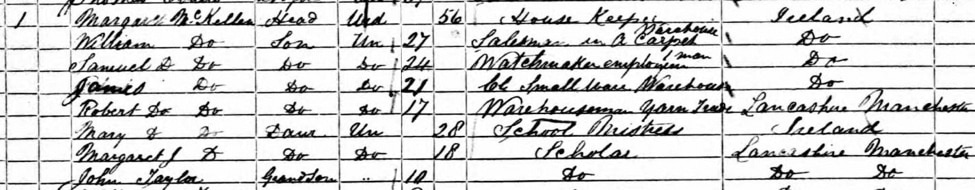 1 Margaret McKellen Head Wid 56 House Keeper Ireland
William Do Son Un 27 Salesman in a Carpet Warehouse Do
Samuel D Do Do Do 24 Watchmaker employing 1 man Do
James Do Do Do 21 Small ware Warehouse Do
Robert Do Do Do Do 17 Warehouseman Yarn Lancashire Manchester
Mary Do Daur Un 28 School Mistress Ireland
Margaret J D Do Do 18 Scholar Lancashire Manchester
John Taylor Grandson " 10 Do Do Do